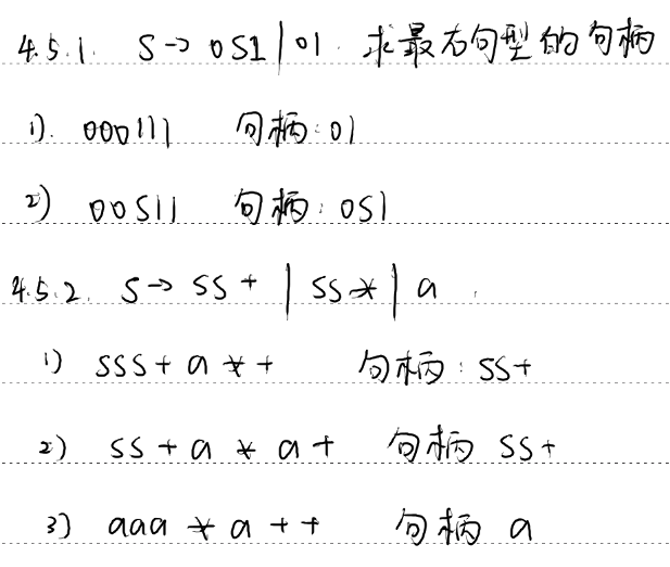 4.5.1. S→ 0S1 | 01. 求最右句型的句柄
1). 000111 句柄:01
2) 00S11 句柄:0S1
4.5.2. S→ SS + | SS* | a .
1) SSS + a * + 句柄:SS+
2) SS + a * a + 句柄 SS+
3) aaa * a + + 句柄 a